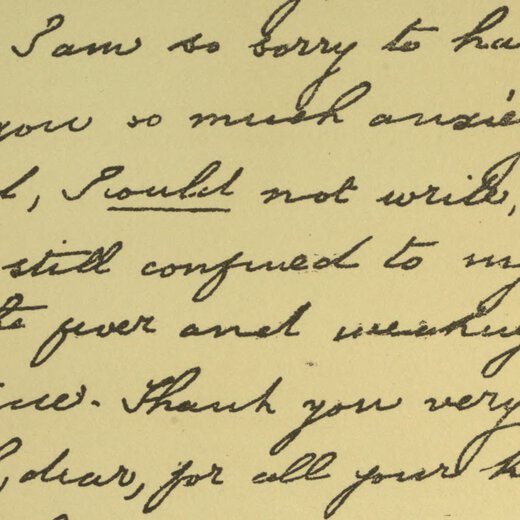 I am so sorry to ha
you so much anxie
d, I could not write,
still confined to my
fever and
Thank you very
dear, for all your k